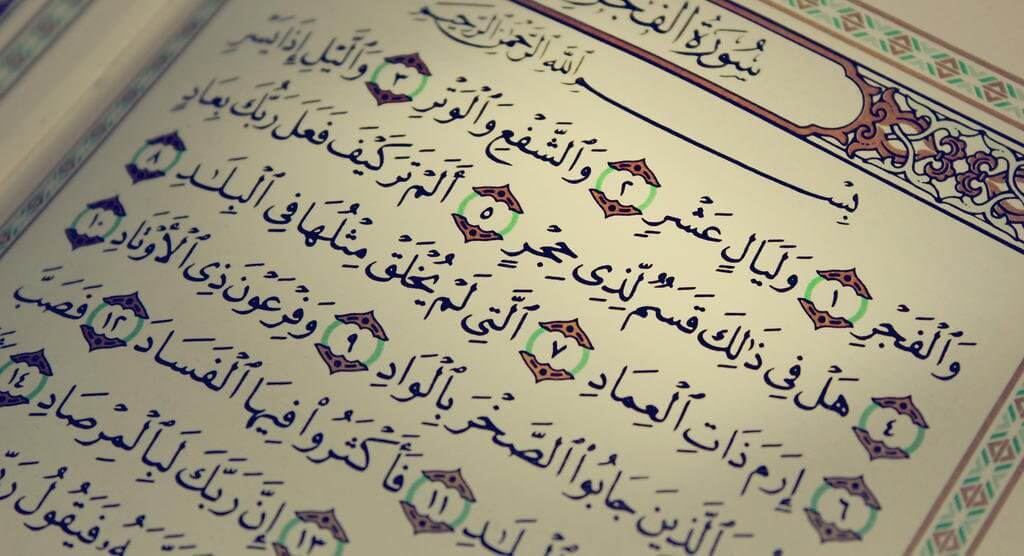 سُورَةُ الْفَجْرِ
بِسْمِ ٱللَّهِ ٱلرَّحْمَٰنِ ٱلرَّحِيمِ
وَٱلْفَجْرِ ١ وَلَيَالٍ عَشْرٍ ٢ وَٱلشَّفْعِ وَٱلْوَتْرِ ٣ وَٱلَّيْلِ إِذَا يَسْرِ
٤ هَلْ فِى ذَٰلِكَ قَسَمٌ لِّذِى حِجْرٍ ٥ أَلَمْ تَرَ كَيْفَ فَعَلَ رَبُّكَ بِعَادٍ
٦ إِرَمَ ذَاتِ ٱلْعِمَادِ ٧ ٱلَّتِى لَمْ يُخْلَقْ مِثْلُهَا فِى ٱلْبِلَٰدِ ٨
ٱلَّذِينَ جَابُوا۟ ٱلصَّخْرَ بِٱلْوَادِ ٩ وَفِرْعَوْنَ ذِى ٱلْأَوْتَادِ ١٠
١١ فَأَكْثَرُوا۟ فِيهَا ٱلْفَسَادَ ١٢ فَصَبَّ
١٣ إِنَّ رَبَّكَ لَبِٱلْمِرْصَادِ ١٤
فَيَقُولُ